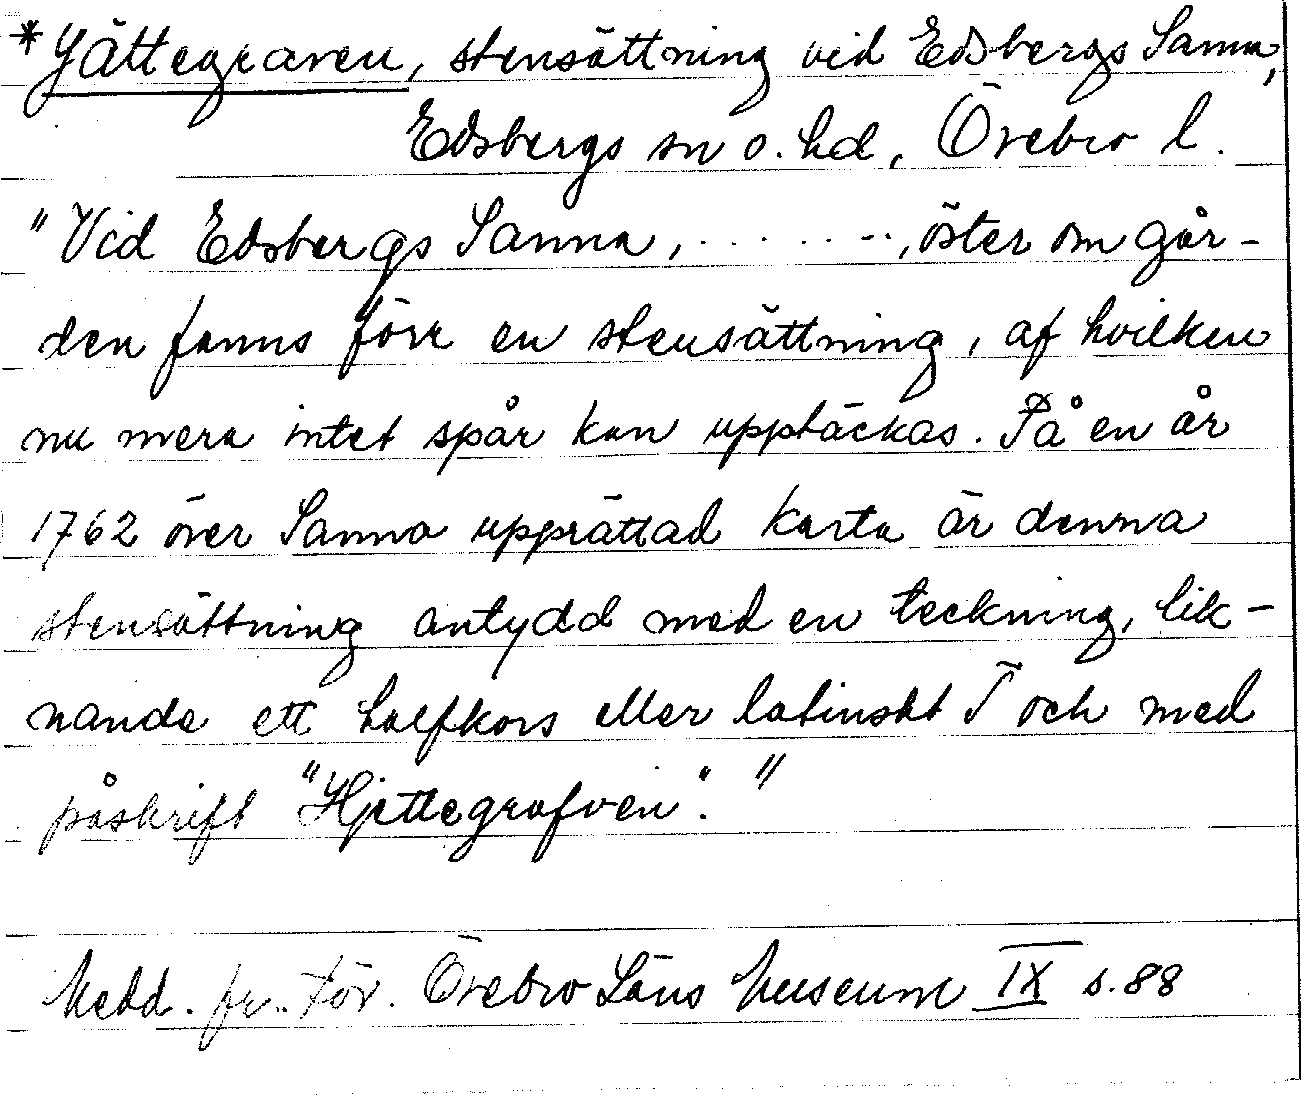 * Jättegraven, stensättning vid Edsbergs Sanna,
Edsbergs sn o. hd, Örebro l.
"Vid Edsbergs Sanna, . . . . . . ., öster om går-
den fanns förr en stensättning, af hvilken
nu mera intet spår kan upptäckas. På en år
1762 över Sanna upprättad karta är denna
stensättning antydd med en teckning, lik-
nande ett halfkors eller latinskt T och med
påskrift "Hjettegrafven"."
Medd. fr. för. Örebro Läns Museum IX s. 88